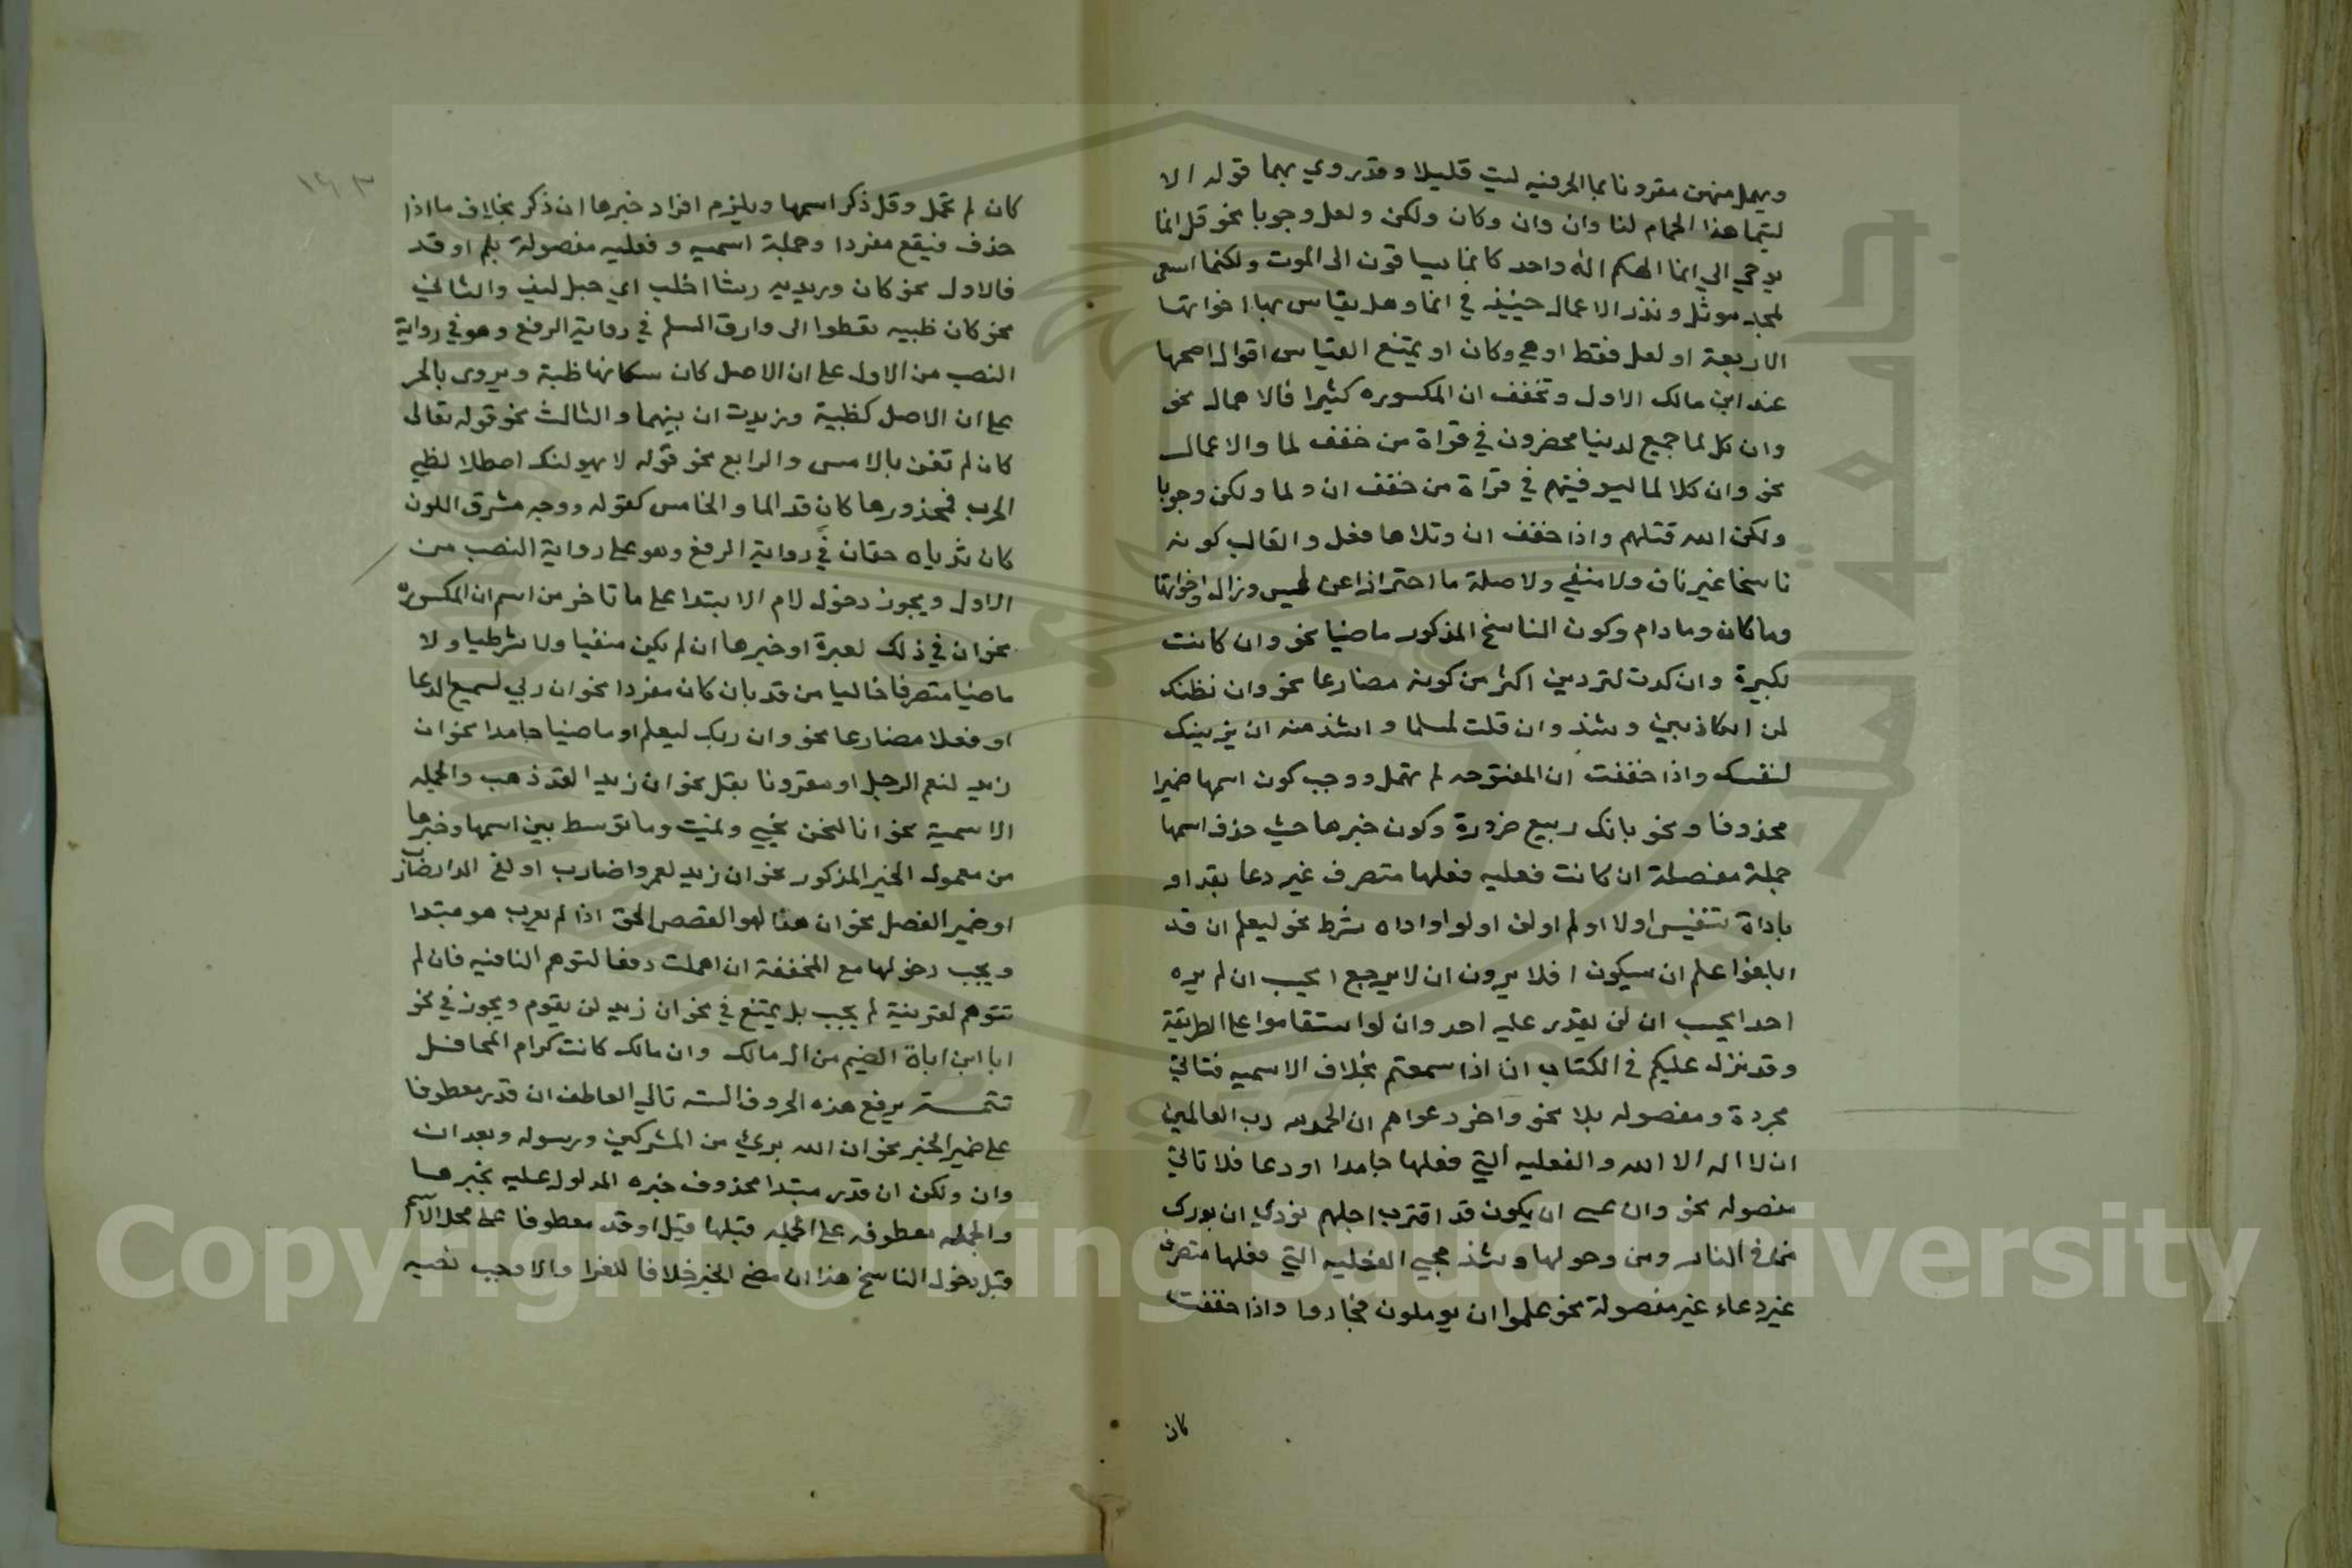 ويهمل منهن مقرونا بما الحرفيه ليت قليلا وقد روي بهما قوله الا
ليتما هذا الحمام لنا وان وان وكان ولكن ولعل وجوبا نحو قل انما
يوحي الي انما الهكم اله واحد كانما يساقون الى الموت ولكنما اسعى
لمجد موثل ونذر الاعمال حينيذ في انما وهل يقاس بها اخواتها
الاربعة او لعل فقط او هي وكان او يمتنع القياس اقوال اصحها
عند ابن مالك الاول وتخفف ان المكسوره كثيرا فالاهمال نحو
وان كل لما جميع لدينا محضرون في قراة من خفف لما والاعمال
نحو وان كلا لما ليوفينهم في قراة من خفف ان ولما ولكن وجوبا
ولكن الله قتلهم واذا خفف ان وتلاها فعل والغالب كونه
ناسخا غير ناف ولا منفي ولا صلة ما احترازا عن ليس وزال واخواتها
وما كان وما دام وكون الناسخ المذكور ماضيا نحو وان كانت
لكبيرة وان كدت لتردين اكثر من كونه مضارعا نحو وان نظنك
لمن الكاذبين وشذ وان قلت لمسلما واشذ منه ان يزينك
لنفسك واذا خففت ان المفتوحه لم تهمل ووجب كون اسمها ضميرا
محذوفا ونحو بانك ربيع ضرورة وكون خبرها حيث حذف اسمها
جملة مفصلة ان كانت فعليه فعلها متصرف غير دعا بقد او
باداة تنفيس او لا او لم او لن او لو او اداه شرط نحو ليعلم ان قد
ابلغوا علم ان سيكون افلا يرون ان لا يرجع ايحسب ان لم يره
احد ايحسب ان لن يقدر عليه احد وان لو استقاموا على الطريقة
وقد نزل عليكم في الكتاب ان اذا سمعتم بخلاف الاسميه فتاتي
مجردة ومفصوله بلا نحو واخر دعواهم ان الحمد لله رب العالمين
ان لا اله الا الله والفعليه التي فعلها جامدا او دعا فلا تاتي
مفصوله نحو وان عسى ان يكون قد اقترب اجلهم نودي ان بورك
من في النار ومن حولها وشذ مجيى الفعليه التي فعلها متصرف
غير دعاء غير مفصولة نحو علموا ان يوملون فجادوا واذا خففت
كان
١٤٣
كان لم تهمل وقل ذكر اسمها ويلزم افراد خبرها ان ذكر بخلاف ما اذا
حذف فيقع مفردا وجملة اسميه وفعليه مفصولة بلم او قد
فالاول نحو كان وريديه رشا اخلب اي حبل ليف والثاني
نحو كان ظبيه تعطوا الى وارق السلم في رواية الرفع وهو في رواية
النصب من الاول على ان الاصل كان مكانها ظبية ويروى بالجر
على ان الاصل كظبية وزيدت ان بينهما والثالث نحو قوله تعالى
كان لم تغن بالامس والرابع نحو قوله لا يهولنك اصطلا لظي
الحرب فمحذورها كان قد الما والخامس كقوله ووجه مشرق اللون
كان ثدياه حقان في رواية الرفع وهو على رواية النصب من
الاول ويجوز دخول لام الابتدا على ما تاخر من اسم ان المكسوره
نحو ان في ذلك لعبرة او خبرها ان لم يكن منفيا ولا شرطيا ولا
ماضيا متصرفا خاليا من قد بان كان مفردا نحو ان ربي لسميع الدعا
او فعلا مضارعا نحو وان ربك ليعلم او ماضيا جامدا نحو ان
زيد لنعم الرجل او مقرونا بقد نحو ان زيدا لقد ذهب والجمله
الاسمية نحو انا لنحن نحيي ونميت وما توسط بين اسمها وخبرها
من معمول الخبر المذكور نحو ان زيد لعمروا ضارب او لفي الدار ضارب
او ضمير الفصل نحو ان هذا لهو القصص الحق اذا لم يعرب هو مبتدا
ويجب دخولها مع المخففة ان اهملت دفعا لتوهم النافيه فان لم
تتوهم لقرينة لم يجب بل يمتنع في نحو ان زيد لن يقوم ويجوز في نحو
ابا ابن اباة الضيم من ال مالك وان مالك كانت كرام المحافل
تتمـــة يرفع هذه الحروف الستة تالي العاطف ان قدر معطوفا
على ضمير الخبر نحو ان الله بريئ من المشركين ورسوله وبعد ان
وان ولكن ان قدر مبتدا محذوف خبره المدلول عليه بخبرها
والجمله معطوفه على الجمله قبلها قيل او قدر معطوفا على محل الاسم
قبل دخول الناسخ هذا ان مضى الخبر خلافا للفرا والا وجب نصبه